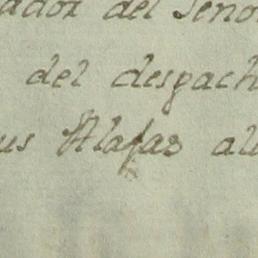 ador del Seño
del despach
us Alafas al